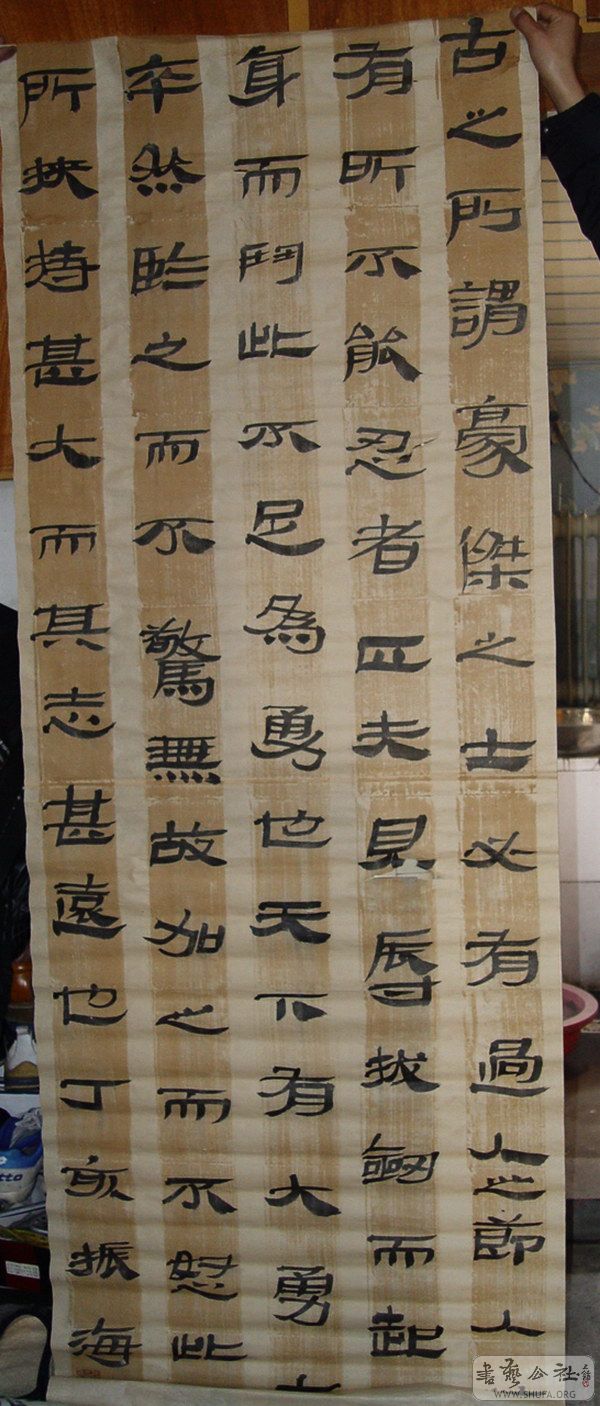 古之所謂豪傑之士必有過人之節人
有所不能忍者匹夫見辱拔劍而起
身而鬥此不足為勇也天下有大勇
卒然臨之而不驚無故加之而不怒此
所挾持甚大而其志甚遠也丁亥振海
書藝公社
WWW.SHUFA.ORG